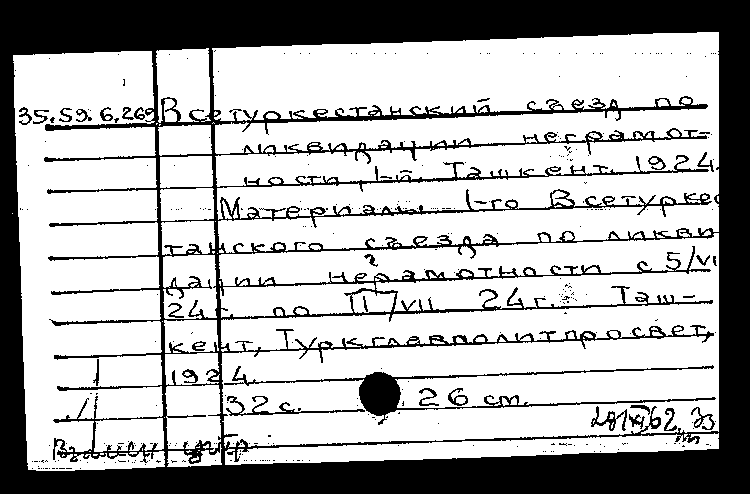 35.59.6.269 Всетуркестанский съезд по
ликвидации неграмот-
ности, 1-й. Ташкент. 1924.
Материалы 1-го Всетурке
танского съезда по ликви
дации неграмотности с 5/VI
24 г. по 11/VII 24 г. Таш-
кент, Туркглавполитпросвет,
1924.
32 с. 26 см.
28/XI 62. Зз